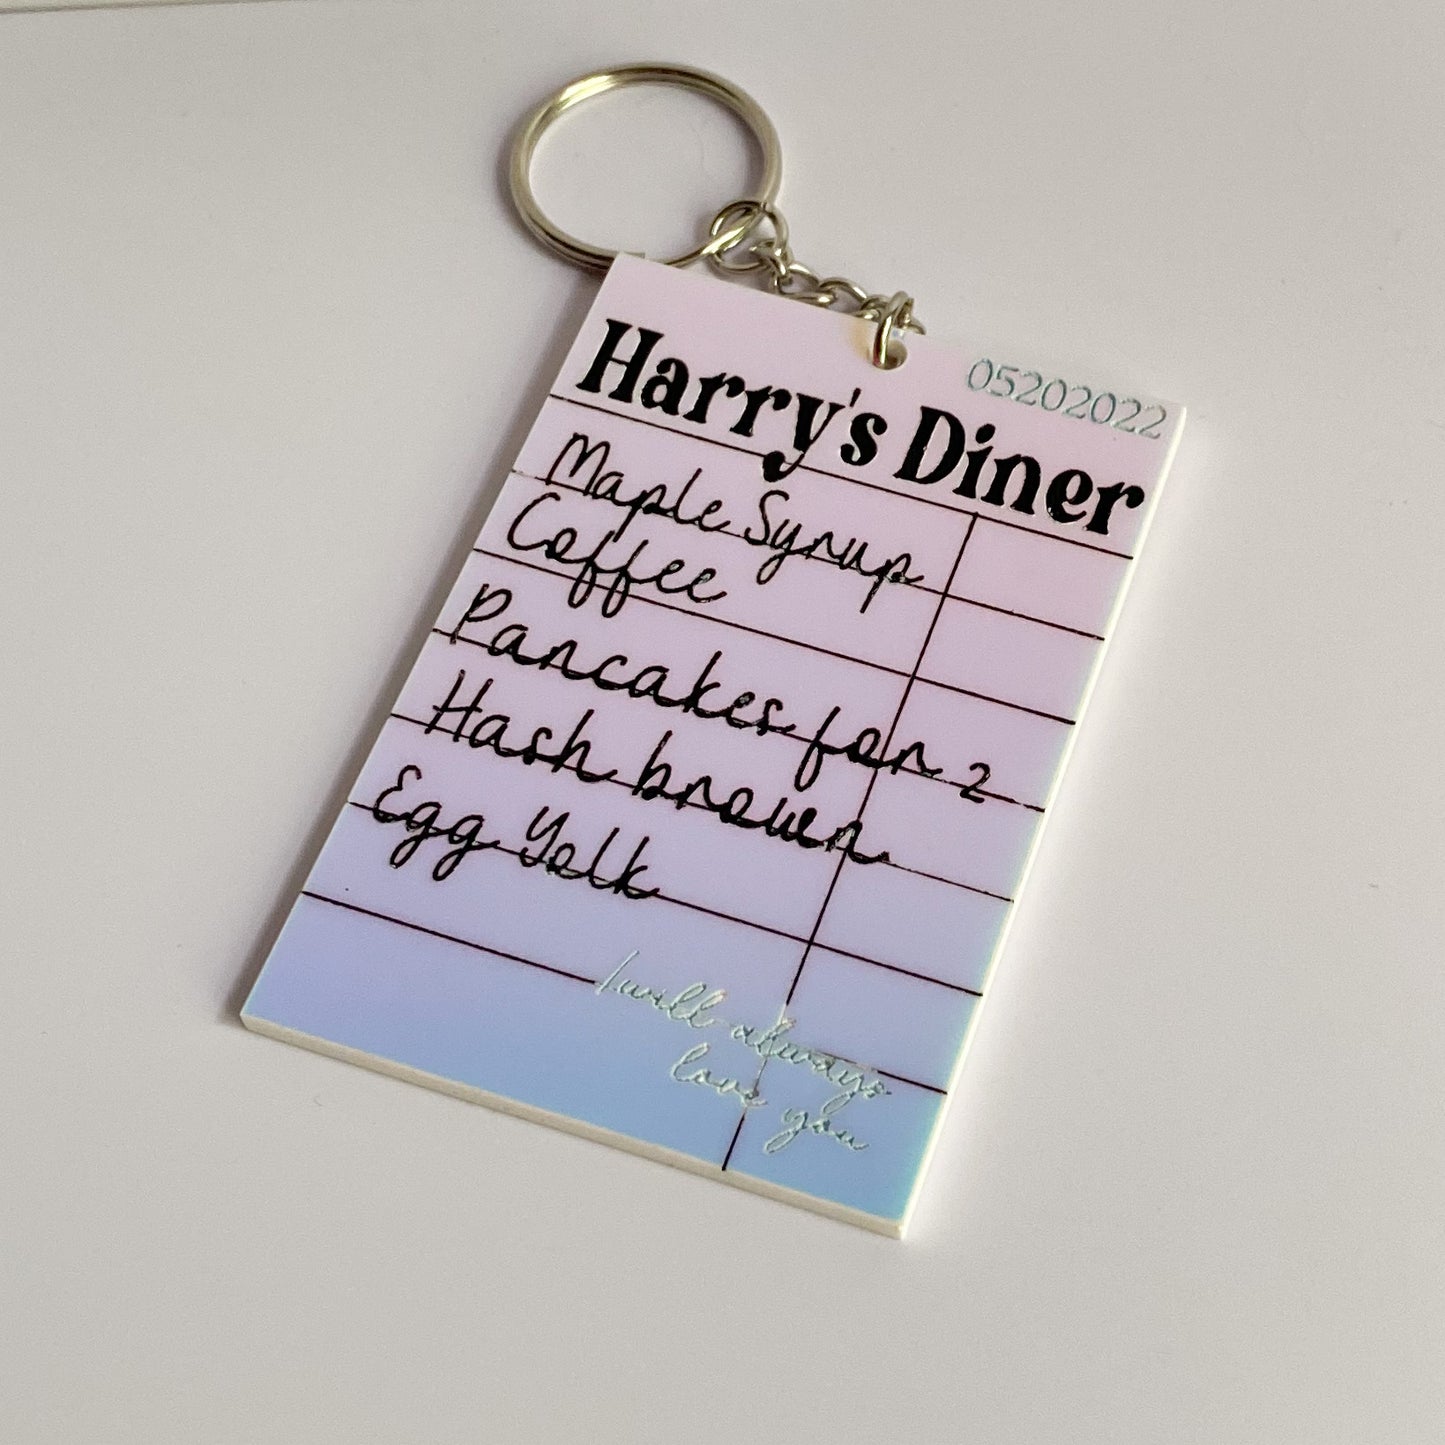 05202022
Harry's Diner
Maple Syrup
Coffee
Pancakes for 2
Hash brown
Egg Yolk
I will always
love you